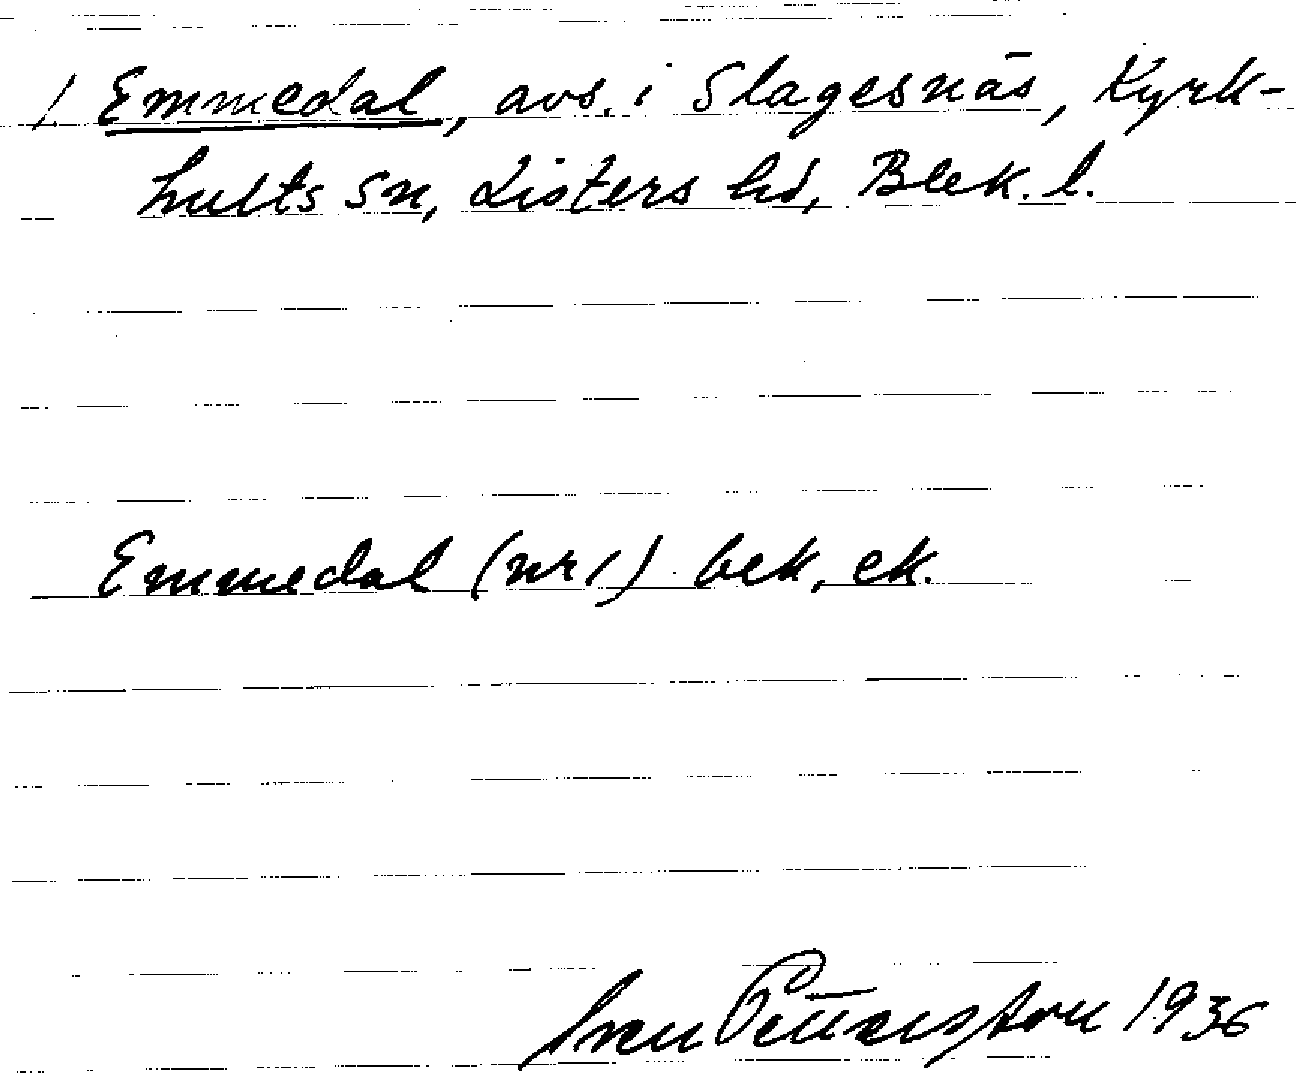 1 Emmedal, avs. i Slagesnäs, Kyrk-
hults sn, Listers hd, Blek. l.
Emmedal (nr 1) bek, ek.
Ivan Pettersson 1936